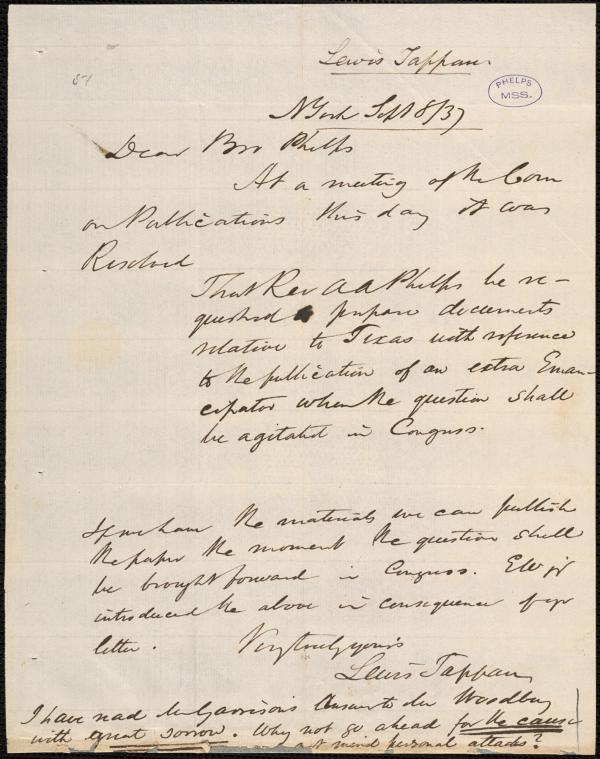 Lewis Tappan.
51
PHELPS
MSS.
N York Sept 8/37
Dear Bro Phelps
At a meeting of the Com
on Publications this day it was
Resolved
That Rev A A Phelps be re-
quested to prepare documents
relative to Texas with reference
to the publication of an extra Eman-
cipator when the question shall
be agitated in Congress.
If we have the materials we can publish
the paper the moment the question shall
be brought forward in Congress. E W jr
introduced the above in consequence of yr
letter. Very truly yours
Lewis Tappan
I have read Mr Garrison's Answer to Mr Woodbury
with great sorrow. Why not go ahead for the cause
& not mind personal attacks?